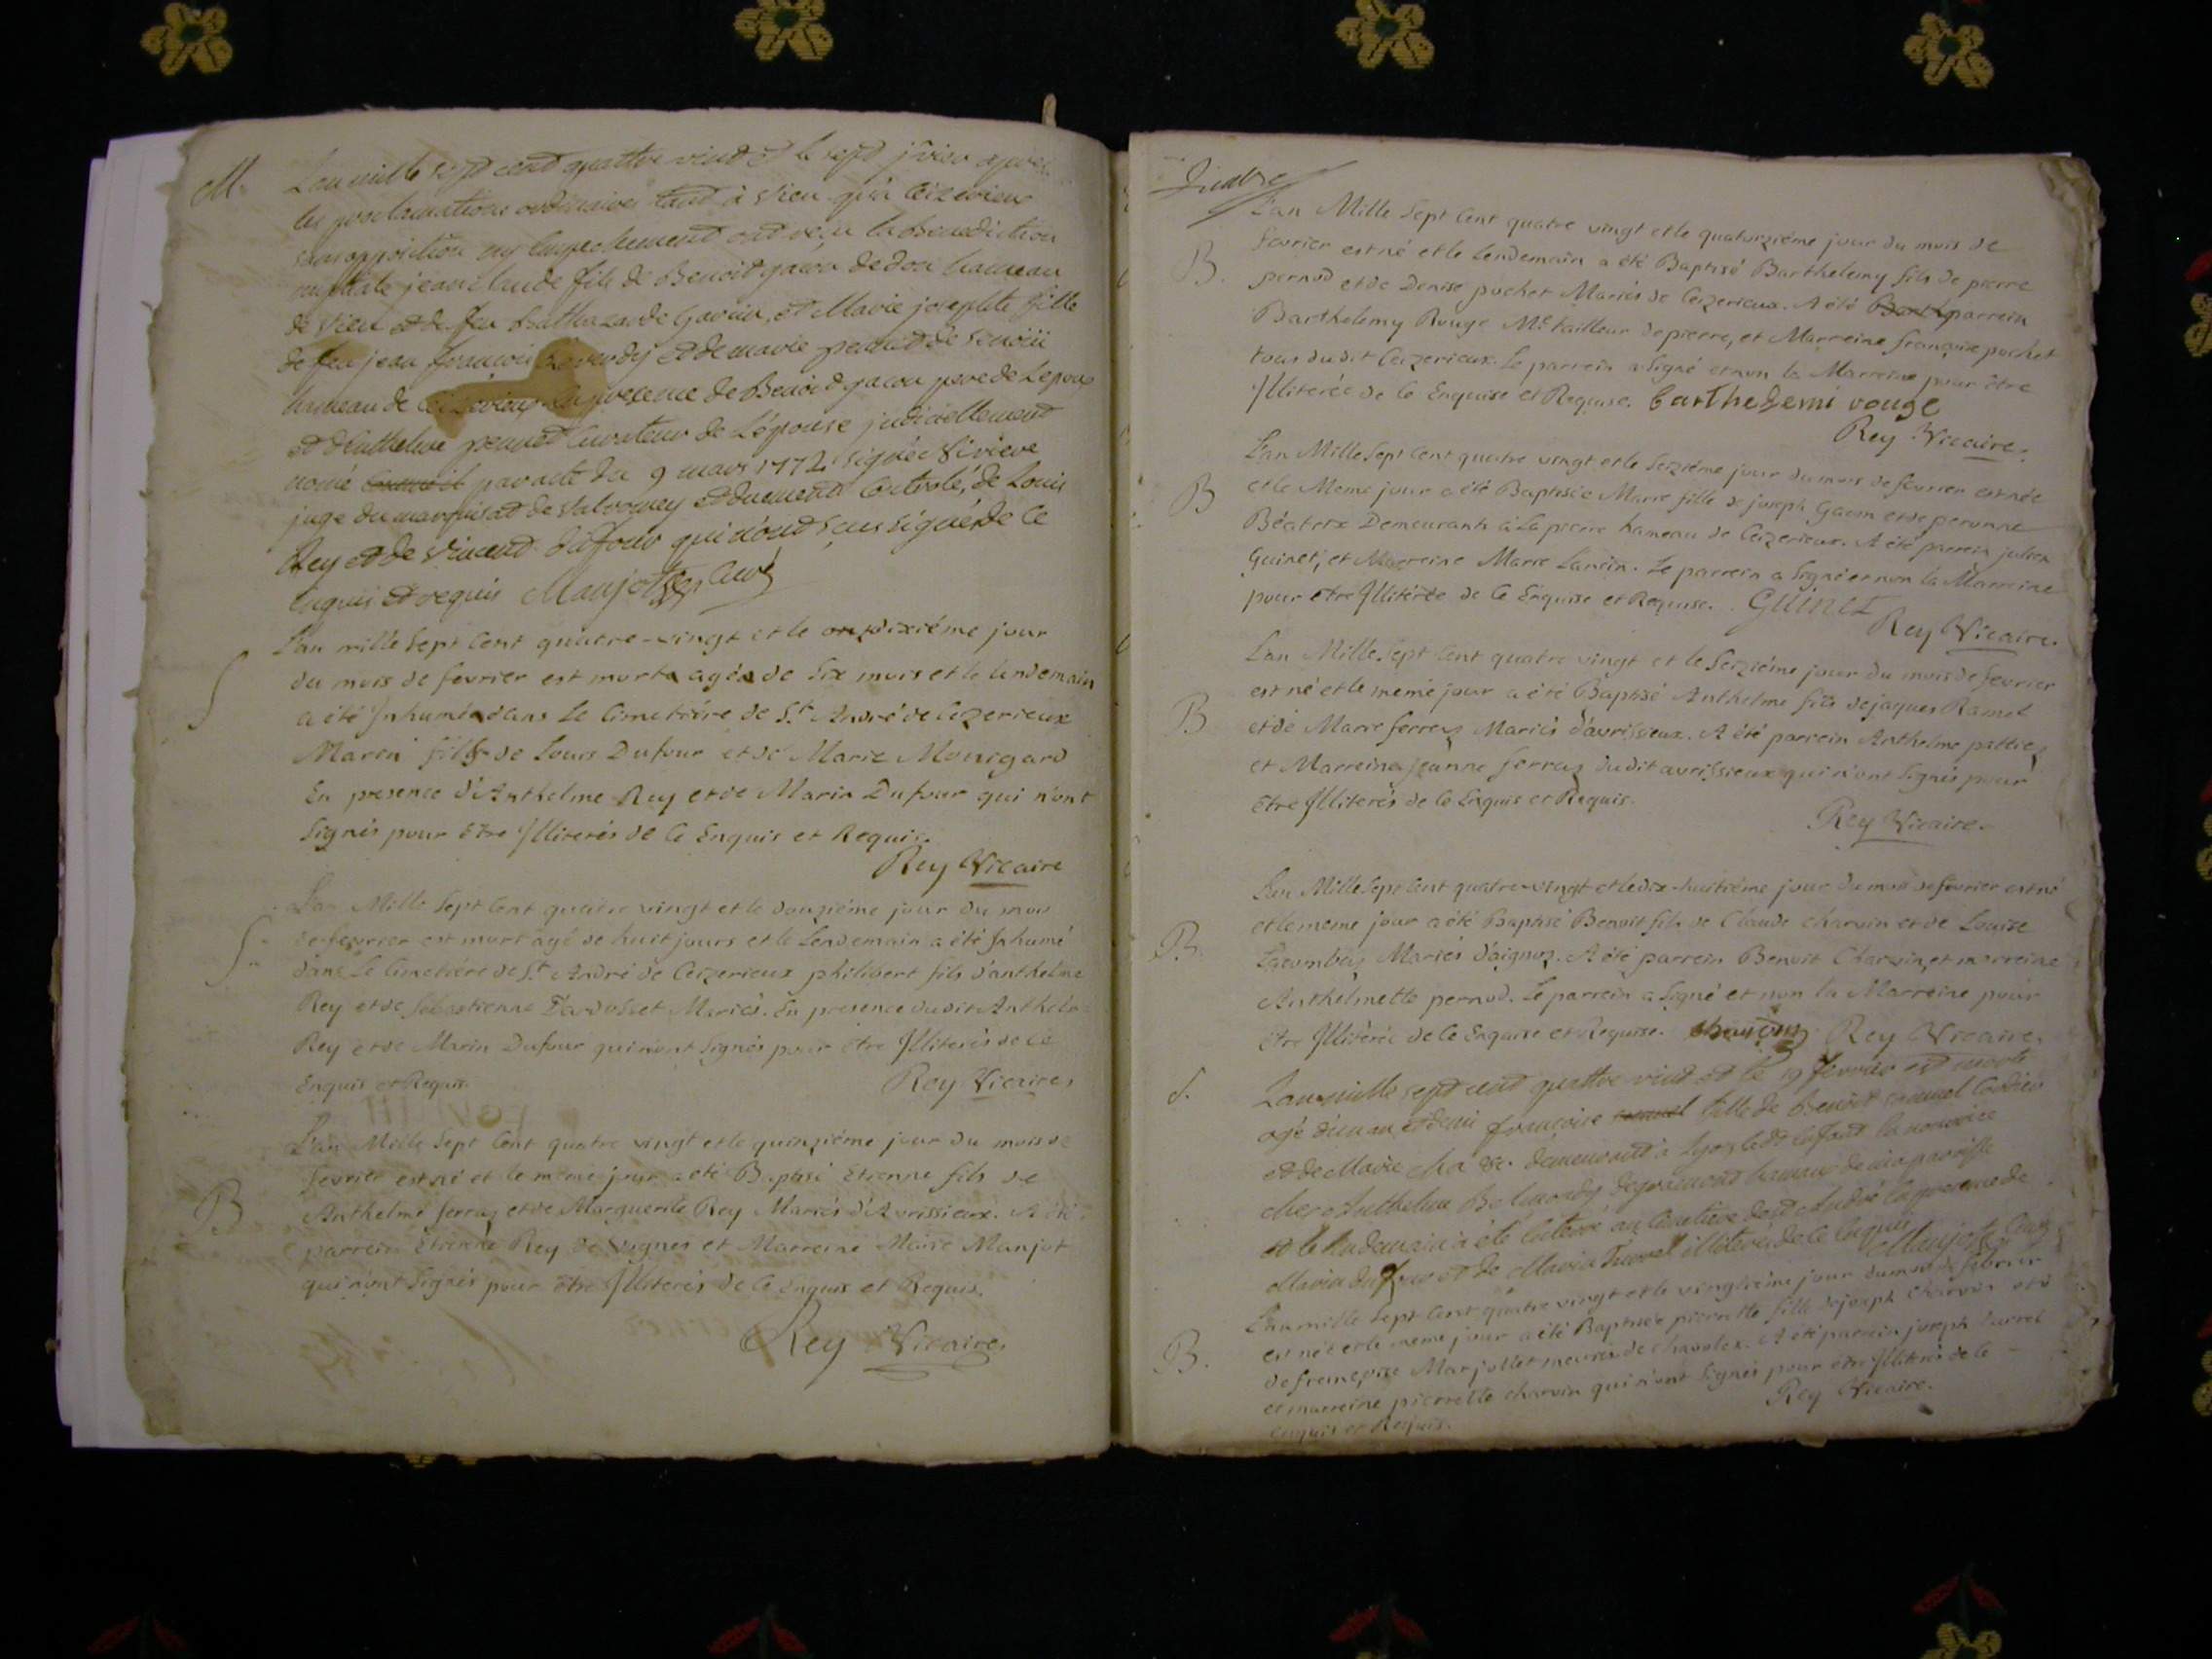 M. L'an mille sept cent quattre vint et le sept fevrier apres
les proclamations ordinaires tant à vieu qu'a Ceizerieux
sans opposition ny empechement ont reçu la benediction
nuptiale jean claude fils de Benoit gacon de don hameau
de vieu et de feu balthazarde Gavin, et Marie josephte fille
de feu jean françois et de marie de
hameau de Ceizerieux En presence de Benoit gacon pere de L'epoux
et d'anthelme Curateur de L'épouse judiciellement
nomé par acte du 9 mars 1772 signée
juge du marquisat de valromey et duement Controlé, de Louis
Rey et de vincent dufour qui n'ont sous signé de ce
Enquis et requis Manjot Curé
L'an mille Sept Cent quatre-vingt et le dixiéme jour
S du mois de fevrier est mort agé de Six mois et le lendemain
a été Inhumé dans Le Cimetiére de S.t André de Ceizerieux
Marin fils de Louis Dufour et de Marie Monigard
En presence d'Anthelme Rey et de Marin Dufour qui n'ont
Signés pour être Illiterés de Ce Enquis et Requis.
Rey Vicaire
L'an Mille Sept Cent quatre vingt et le douziéme jour du mois
S. de fevrier est mort agé de huit jours et le Lendemain a été Inhumé
dans Le Cimetiére de S.t André de Ceizerieux philibert fils d'anthelme
Rey et de Sébastienne Mariés. En presence dudit Anthelme
Rey et de Marin Dufour qui n'ont Signés pour être Illiterés de Ce
Enquis et Requis. Rey Vicaire
L'an Mille Sept Cent quatre vingt et le quinziéme jour du mois de
fevrier est né et le même jour a été Baptisé Etienne fils de
B Anthelme ferraz et de Marguerite Rey Mariés d'Avrissieux. A été
parrein Etienne Rey de Vognes et Marreine Marie Manjot
qui n'ont Signés pour être Illiterés de Ce Enquis et Requis.
Rey Vicaire
L'an Mille Sept Cent quatre vingt et le quatorziéme jour du mois de
B. fevrier est né et le lendemain a été Baptisé Barthelemy fils de pierre
pernod et de Denise pochet Mariés de Ceizerieux. A été Barth parrein
Barthelemy Rouge M.e tailleur de pierre, et Marreine françoise pochet
tous dudit Ceizerieux. Le parrein a Signé et non la Marreine pour être
Illiterée de Ce Enquise et Requise. barThelemi rouge
Rey Vicaire.
L'an Mille Sept Cent quatre vingt et le Seiziéme jour du mois de fevrier est née
B et le Meme jour a été Baptisée Marie fille de joseph Gacon et de peronne
Béatrix Demeurants à La pierre hameau de Ceizerieux. A été parrein julien
Guinet, et Marreine Marie Lancin. Le parrein a Signé et non la Marreine
pour etre Illitérée de Ce Enquise et Requise. GUINET
Rey Vicaire.
L'an Mille Sept Cent quatre vingt et le Seiziéme jour du mois de fevrier
est né et le même jour a été Baptisé Anthelme fils de jaques Ramel
B et de Marie ferraz Mariés d'avrissieux. A été parrein Anthelme
et Marreine jeanne ferraz dudit avrissieux qui n'ont Signés pour
être Illiterés de Ce Enquis et Requis.
Rey Vicaire.
L'an Mille Sept Cent quatre-vingt et le dix-huitiéme jour du mois de fevrier est né
et le meme jour a été Baptisé Benoit fils de Claude charvin et de Louise
B. Mariés d'aignoz. A été parrein Benoit Charvin, et marreine
Anthelmette pernod. Le parrein a Signé et non la Marreine pour
être Illitérée de Ce Enquise et Requise. Rey Vicaire.
S. L'an mille sept cent quattre vint et le 19 fevrier est morte
agé d'un an et demi françoise fille de Benoit
et de Marie demeurant à Lyon
chez Anthelme de hameau de ma paroisse
et le lendemain a été Enterré au Cimetiere de st André En presence de
Marin dufour et de Marin illiteré de Ce Enquis Manjot Curé
L'an mille Sept Cent quatre vingt et le vingtiéme jour du mois de febrier
est née et le meme jour a été Baptisée pierrette fille de joseph Charvin et
B. de françoise Marjollet mariés de chavolex. A été parrein joseph
et marreine pierrette charvin qui n'ont Signés pour être Illiterés de Ce
enquis et Requis. Rey Vicaire.